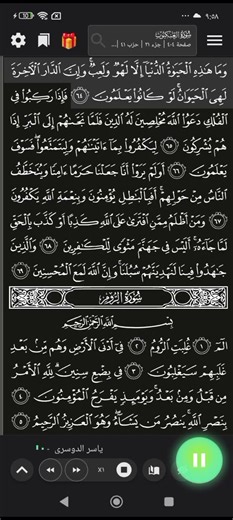 ٩:٥٨
سُورَةُ العَنكَبُوت
صفحة ٤٠٤ | جزء ٢١ | حزب ٤١
وَمَا هَٰذِهِ ٱلْحَيَوٰةُ ٱلدُّنْيَآ إِلَّا لَهْوٌ وَلَعِبٌ ۚ وَإِنَّ ٱلدَّارَ ٱلْـَٔاخِرَةَ
لَهِىَ ٱلْحَيَوَانُ ۚ لَوْ كَانُوا۟ يَعْلَمُونَ ٦٤ فَإِذَا رَكِبُوا۟ فِى
ٱلْفُلْكِ دَعَوُا۟ ٱللَّهَ مُخْلِصِينَ لَهُ ٱلدِّينَ فَلَمَّا نَجَّىٰهُمْ إِلَى ٱلْبَرِّ إِذَا
هُمْ يُشْرِكُونَ ٦٥ لِيَكْفُرُوا۟ بِمَآ ءَاتَيْنَٰهُمْ وَلِيَتَمَتَّعُوا۟ ۖ فَسَوْفَ
يَعْلَمُونَ ٦٦ أَوَلَمْ يَرَوْا۟ أَنَّا جَعَلْنَا حَرَمًا ءَامِنًا وَيُتَخَطَّفُ
ٱلنَّاسُ مِنْ حَوْلِهِمْ ۚ أَفَبِٱلْبَٰطِلِ يُؤْمِنُونَ وَبِنِعْمَةِ ٱللَّهِ يَكْفُرُونَ
٦٧ وَمَنْ أَظْلَمُ مِمَّنِ ٱفْتَرَىٰ عَلَى ٱللَّهِ كَذِبًا أَوْ كَذَّبَ بِٱلْحَقِّ
لَمَّا جَآءَهُۥٓ ۚ أَلَيْسَ فِى جَهَنَّمَ مَثْوًى لِّلْكَٰفِرِينَ ٦٨ وَٱلَّذِينَ
جَٰهَدُوا۟ فِينَا لَنَهْدِيَنَّهُمْ سُبُلَنَا ۚ وَإِنَّ ٱللَّهَ لَمَعَ ٱلْمُحْسِنِينَ ٦٩
سُورَةُ الرُّومِ
بِسْمِ ٱللَّهِ ٱلرَّحْمَٰنِ ٱلرَّحِيمِ
الٓمٓ ١ غُلِبَتِ ٱلرُّومُ ٢ فِىٓ أَدْنَى ٱلْأَرْضِ وَهُم مِّنۢ بَعْدِ
غَلَبِهِمْ سَيَغْلِبُونَ ٣ فِى بِضْعِ سِنِينَ ۗ لِلَّهِ ٱلْأَمْرُ
مِن قَبْلُ وَمِنۢ بَعْدُ ۚ وَيَوْمَئِذٍ يَفْرَحُ ٱلْمُؤْمِنُونَ ٤
بِنَصْرِ ٱللَّهِ ۚ يَنصُرُ مَن يَشَآءُ ۖ وَهُوَ ٱلْعَزِيزُ ٱلرَّحِيمُ ٥
ياسر الدوسري
X1